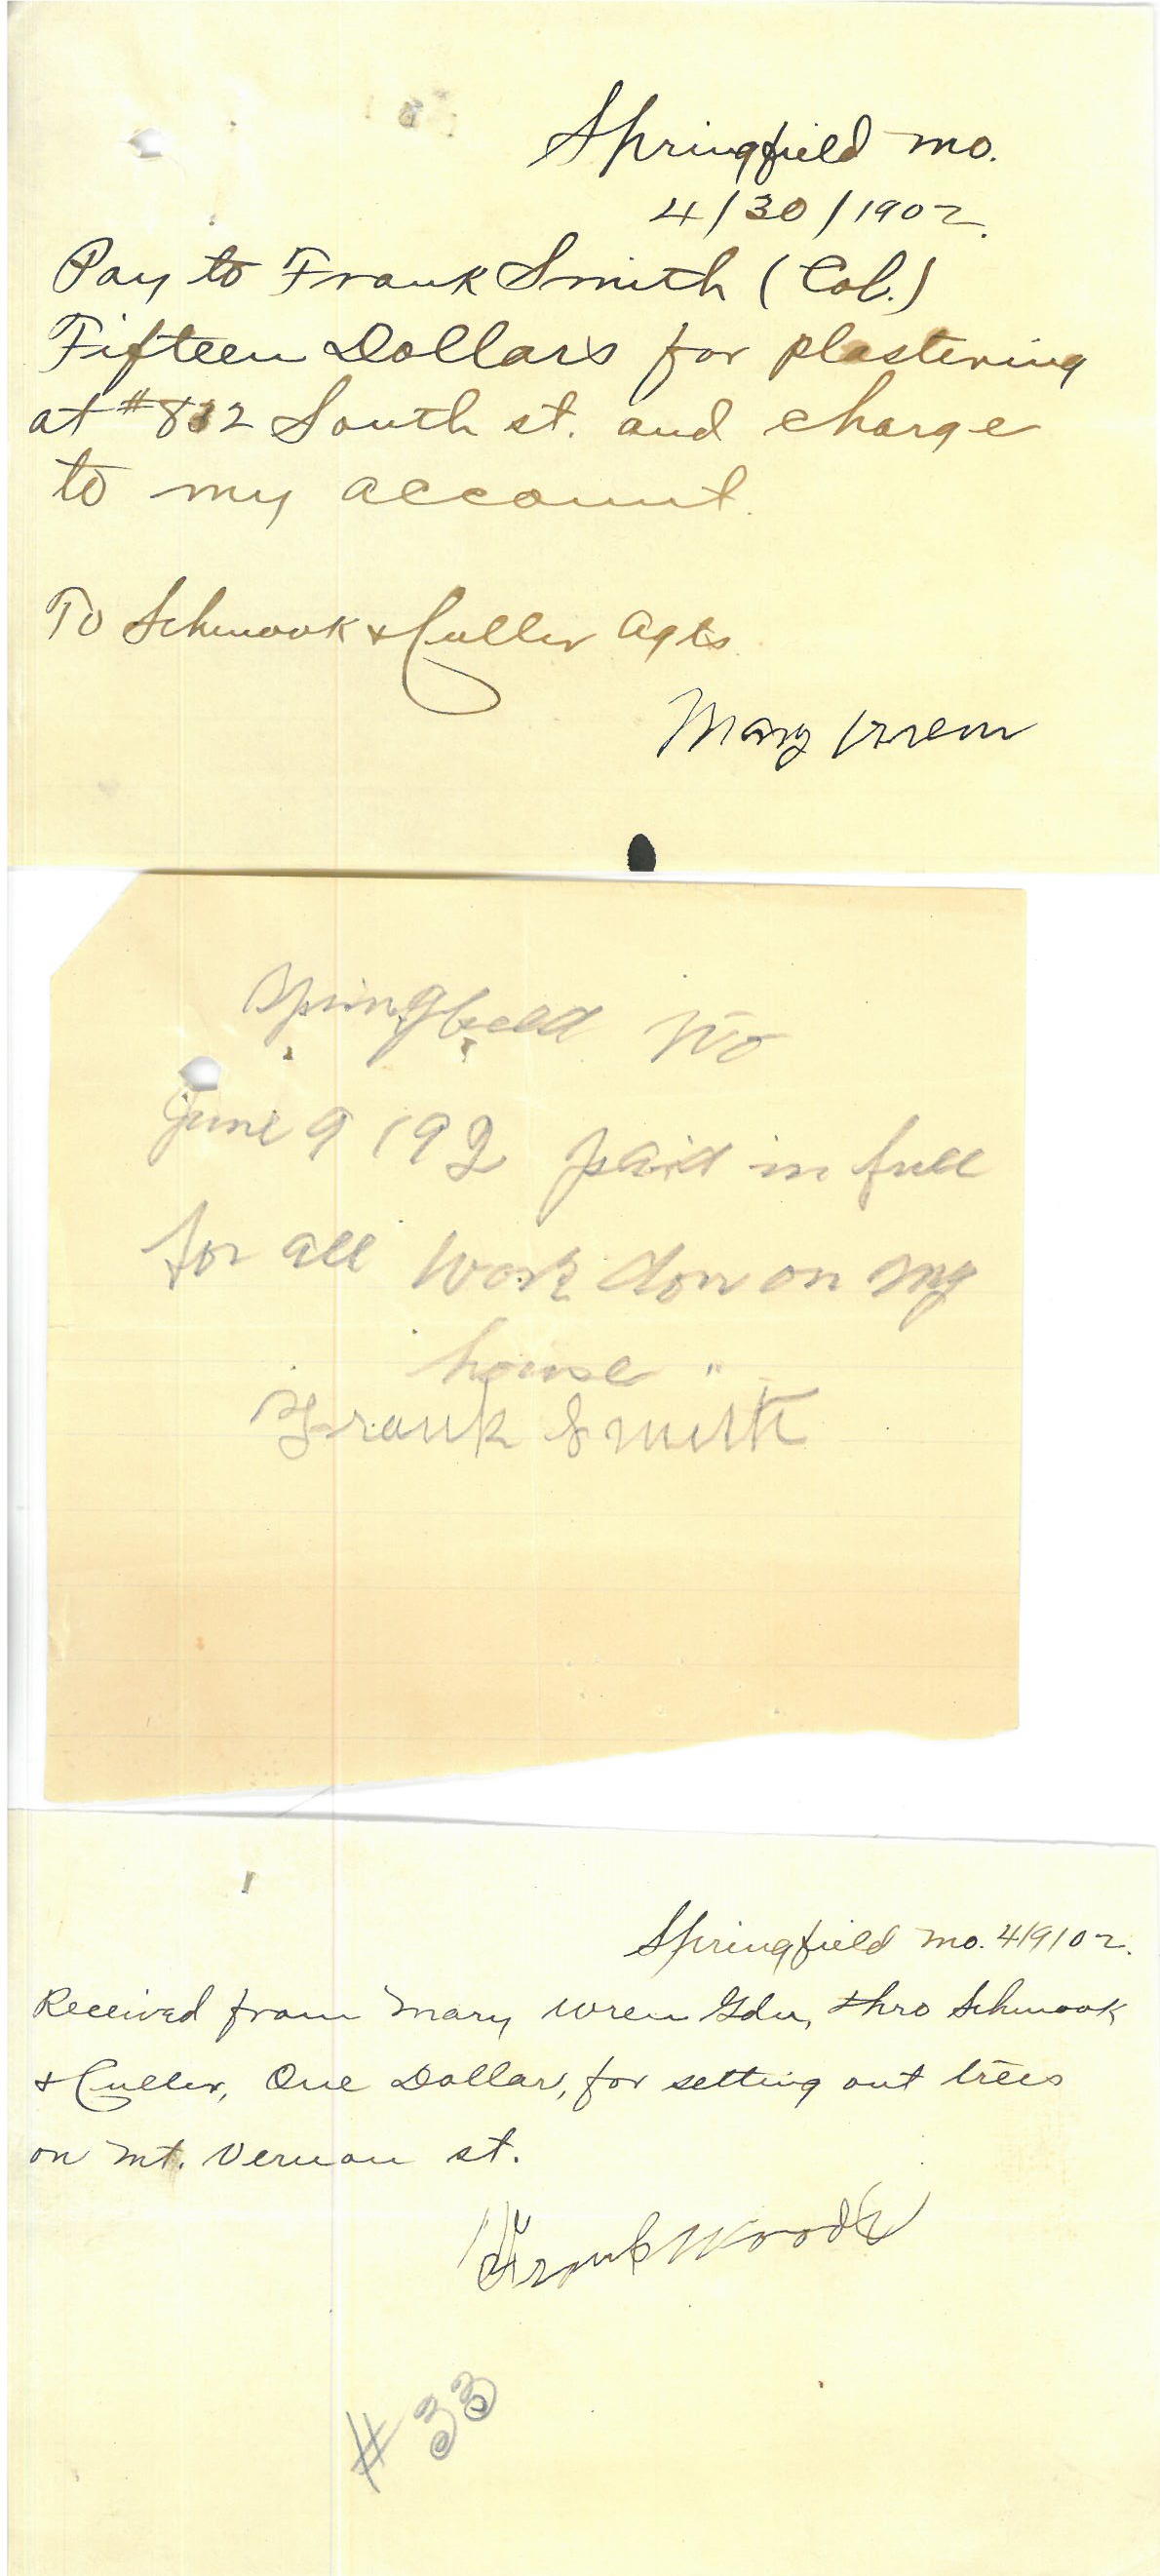 Springfield Mo.
4/30/1902.
Pay to Frank Smith (Col.)
Fifteen Dollars for plastering
at #832 South st. and charge
to my account.
To Schmook & Culler Agts.
Mary Wren
Springfield Mo
June 9 192 paid in full
for all work don on my
house "
Frank Smith
Springfield Mo. 4/9/02.
Received from Mary Wren Gdn, thro Schmook
& Culler, One Dollar, for setting out trees
on Mt. Vernon st.
Frank Woods
#33